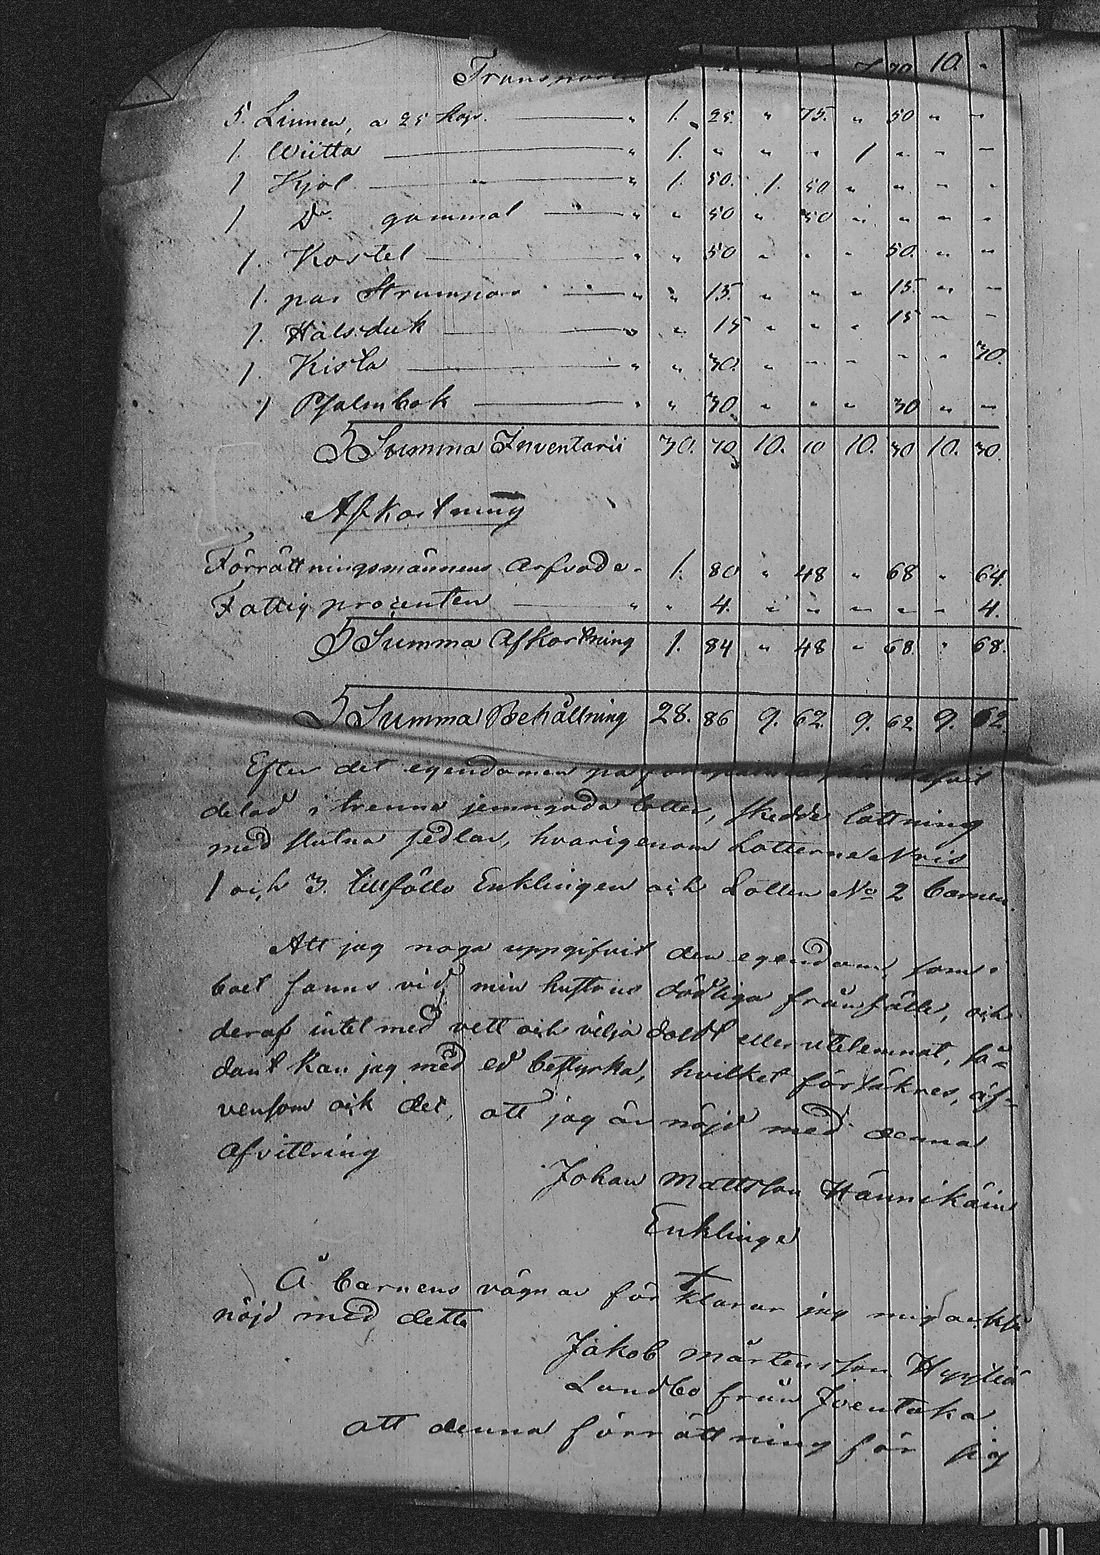 Transport 10. "
5. Linnen, a 25 kop. " 1. 25. " 75. " 50 " "
1. Wiitta " 1. " " " 1 " " "
1 Kjol " " 1. 50. 1. 50 " " " "
1 Do gammal " " 50 " 50 " " " "
1. Kostel " " 50 " " " 50. " "
1. par Strumpor " " 15. " " " 15. " "
1. Halsduk " " 15 " " " 15 " "
1. Kista " " 30. " " " " " 30.
1 Psalmbok " " 30. " " " 30 " "
Summa Inventarii 30. 70 10. 10 10. 30 10. 30.
Afkortning
Förrättningsmännens arfvode " 1. 80 " 48 " 68 " 64.
Fattig procenten " " 4. " " " " " 4.
Summa Afkortning 1. 84 " 48 " 68 " 68.
Summa Behållning 28. 86 9. 62. 9. 62 9. 62.
Efter det egendomen på
delad i trenne jemngoda lotter, skedde lottning
med slutna sedlar, hvarigenom Lotterne Nris
1 och 3 tillföllo Enklingen och Lotten No 2 barnen.
Att jag noga uppgifvit den egendom som i
boet fanns vid min hustrus dödliga frånfälle, och
deraf intet med vett och vilja doldt eller utelemnat, så-
dant kan jag med ed bestyrka, hvilket försäkras, äf-
vensom ock det, att jag är nöjd med denna
afvittring
Johan Mattsson Hännikäin
Enklinge
Å barnens vägnar förklarar jag mig
nöjd med detta
Jakob Mårtensson
Landbo från
att denna förrättning för sig